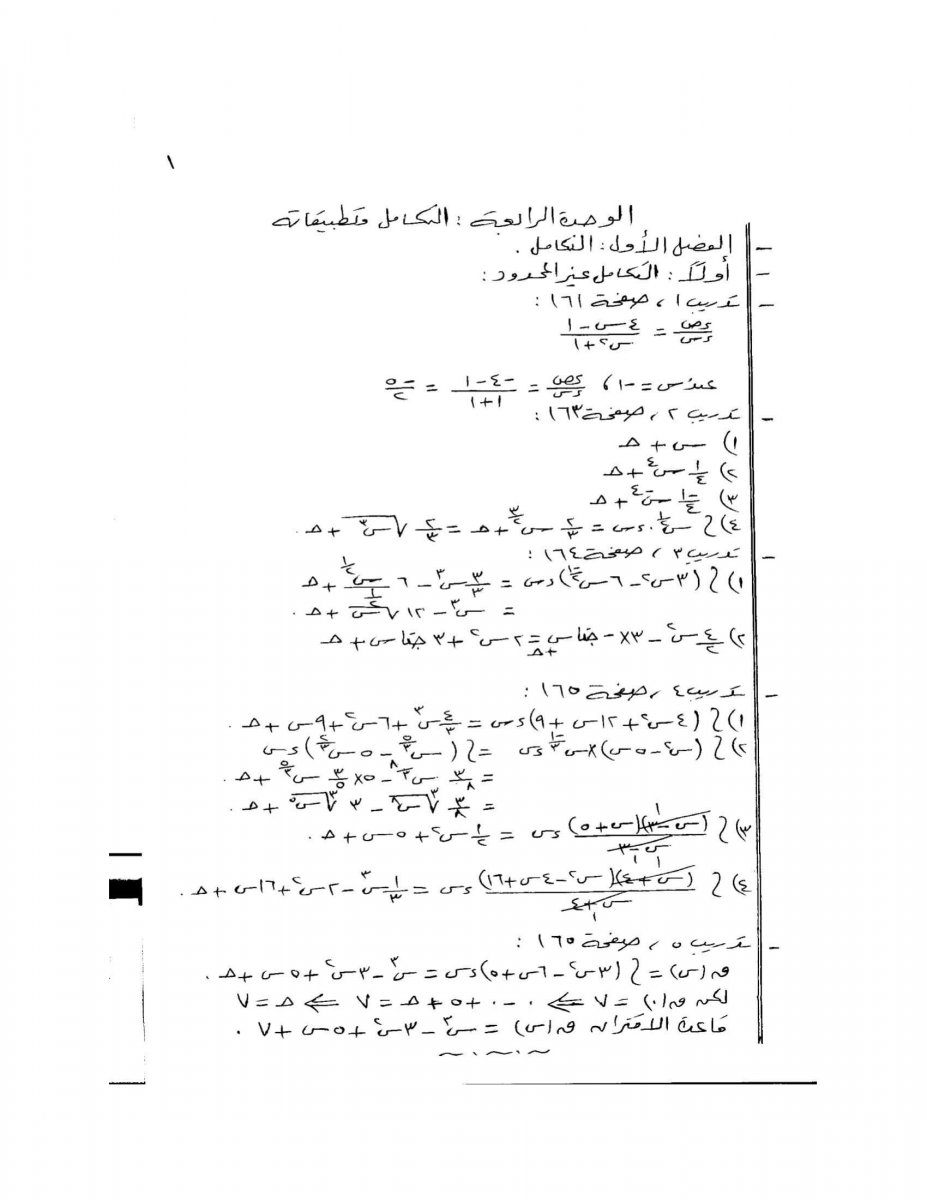 ١
الوحدة الرابعة : التكامل وتطبيقاته
- الفصل الأول : التكامل .
- أولاً : التكامل غير المحدود :
- تدريب ١ ، صفحة ١٦١ :
ءص/ءس = (٤س - ١)/(س٢ + ١)
عند س = -١ ، ءص/ءس = (-٤ - ١)/(١ + ١) = -٥/٢
- تدريب ٢ ، صفحة ١٦٣ :
١) س + حـ
٢) ١/٤ س^٤ + حـ
٣) -١/٤ س^-٤ + حـ
٤) ∫ س^(١/٢) . ءس = ٢/٣ س^(٣/٢) + حـ = ٢/٣ √س^٣ + حـ .
- تدريب ٣ ، صفحة ١٦٤ :
١) ∫ (٣س^٢ - ٦س^(-١/٢)) ءس = ٣/٣ س^٣ - ٦ س^(١/٢)/(١/٢) + حـ
= س^٣ - ١٢√س + حـ .
٢) ٤/٢ س^٢ - ٣× - جتاس + حـ = ٢س^٢ + ٣ جتاس + حـ
- تدريب ٤ ، صفحة ١٦٥ :
١) ∫ (٤س^٢ + ١٢س + ٩) ءس = ٤/٣ س^٣ + ٦س^٢ + ٩س + حـ .
٢) ∫ (س^٢ - ٥س) × س^(-١/٣) ءس = ∫ (س^(٥/٣) - ٥س^(٢/٣)) ءس
= ٣/٨ س^(٨/٣) - ٥ × ٣/٥ س^(٥/٣) + حـ .
= ٣/٨ ∛س^٨ - ٣ ∛س^٥ + حـ .
٣) ∫ (س - ٣)(س + ٥)/(س - ٣) ءس = ١/٢ س^٢ + ٥س + حـ .
٤) ∫ (س + ٤)(س^٢ - ٤س + ١٦)/(س + ٤) ءس = ١/٣ س^٣ - ٢س^٢ + ١٦س + حـ .
- تدريب ٥ ، صفحة ١٦٥ :
ق(س) = ∫ (٣س^٢ - ٦س + ٥) ءس = س^٣ - ٣س^٢ + ٥س + حـ .
لكن ق(٠) = ٧ ⇐ ٠ - ٠ + ٥ + حـ = ٧ ⇐ حـ = ٧
قاعدة الاقتران ق(س) = س^٣ - ٣س^٢ + ٥س + ٧ .